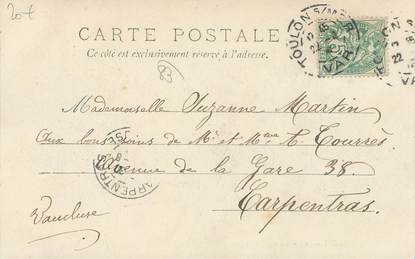 20+
CARTE POSTALE
Ce côté est exclusivement réservé à l'adresse.
TOULON S/MER
VAR
83
Mademoiselle Suzanne Martin
Aux bons soins de Mr et Mme A. Tourrès
Avenue de la Gare 38.
Carpentras.
CARPENTRAS
Vaucluse